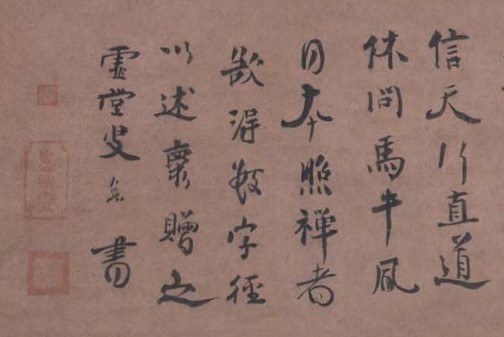 信天行直道
休問馬牛風
日本照禅者
欲得数字徑
以述褱贈之
虚堂叟書